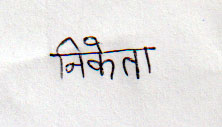 निकेता